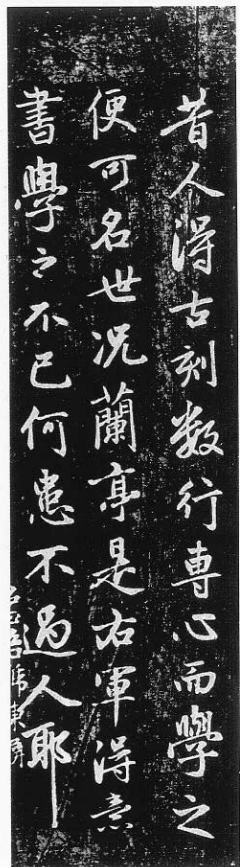 昔人得古刻数行専心而學之
便可名世况蘭亭是右軍得意
書學之不已何患不過人耶